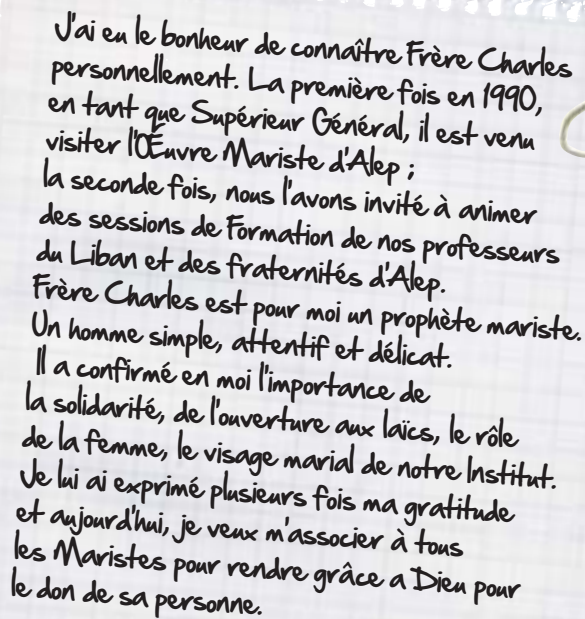 J'ai eu le bonheur de connaître Frère Charles
personnellement. La première fois en 1990,
en tant que Supérieur Général, il est venu
visiter l'Œuvre Mariste d'Alep ;
la seconde fois, nous l'avons invité à animer
des sessions de Formation de nos professeurs
du Liban et des fraternités d'Alep.
Frère Charles est pour moi un prophète mariste.
Un homme simple, attentif et délicat.
Il a confirmé en moi l'importance de
la solidarité, de l'ouverture aux laïcs, le rôle
de la femme, le visage marial de notre Institut.
Je lui ai exprimé plusieurs fois ma gratitude
et aujourd'hui, je veux m'associer à tous
les Maristes pour rendre grâce a Dieu pour
le don de sa personne.